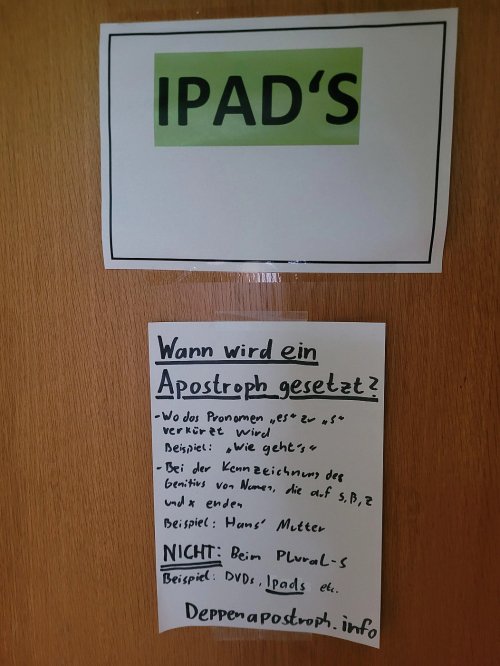 IPAD‘S
Wann wird ein
Apostroph gesetzt?
- Wo das Pronomen „es“ zu „s“
verkürzt wird
Beispiel: „Wie geht's“
- Bei der Kennzeichnung des
Genitivs von Namen, die auf s, ß, z
und x enden
Beispiel: Hans' Mutter
NICHT: Beim Plural-s
Beispiel: DVDs, Ipads etc.
Deppenapostroph.info